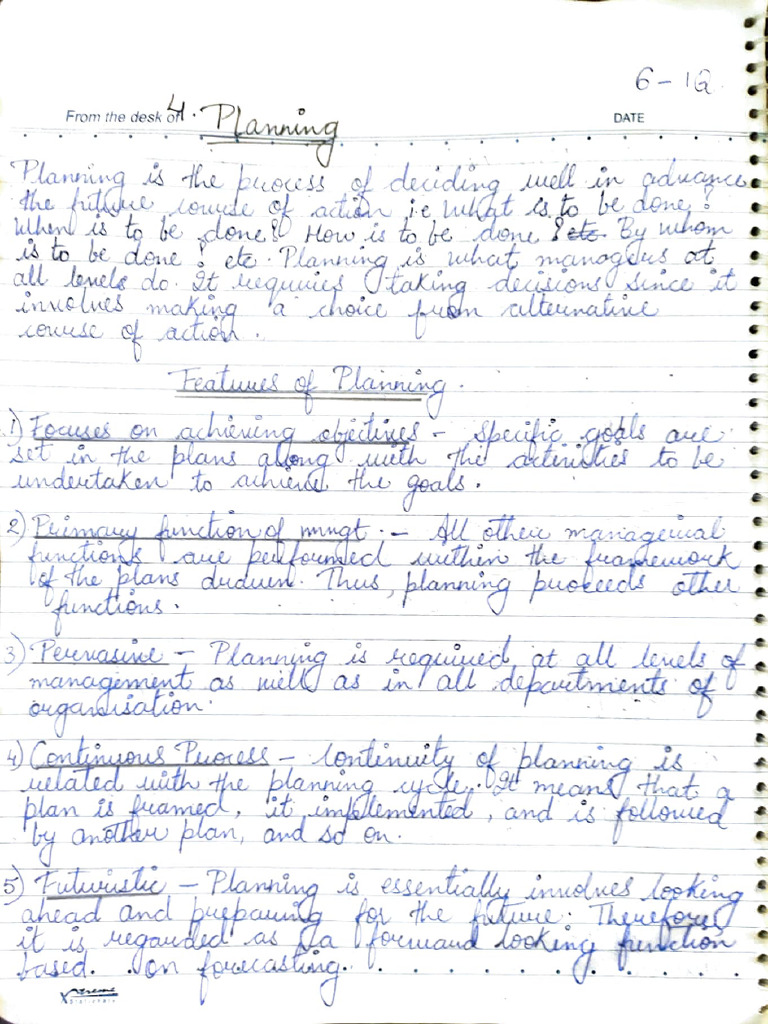 6-12
From the desk of 4. Planning DATE
Planning is the process of deciding well in advance
the future course of action i.e. What is to be done?
When is to be done? How is to be done? etc. By whom
is to be done? etc. Planning is what managers at
all levels do. It requires taking decisions since it
involves making a choice from alternative
course of action.
Features of Planning.
1) Focuses on achieving objectives - Specific goals are
set in the plans along with the activities to be
undertaken to achieve the goals.
2) Primary function of mngt. - All other managerial
functions are performed within the framework
of the plans drawn. Thus, planning proceeds other
functions.
3) Pervasive - Planning is required at all levels of
management as well as in all departments of
organisation.
4) Continuous Process - Continuity of planning is
related with the planning cycle. It means that a
plan is framed, it implemented, and is followed
by another plan, and so on.
5) Futuristic - Planning is essentially involves looking
ahead and preparing for the future. Therefore,
it is regarded as a forward looking function
based on forecasting.
Xtreme